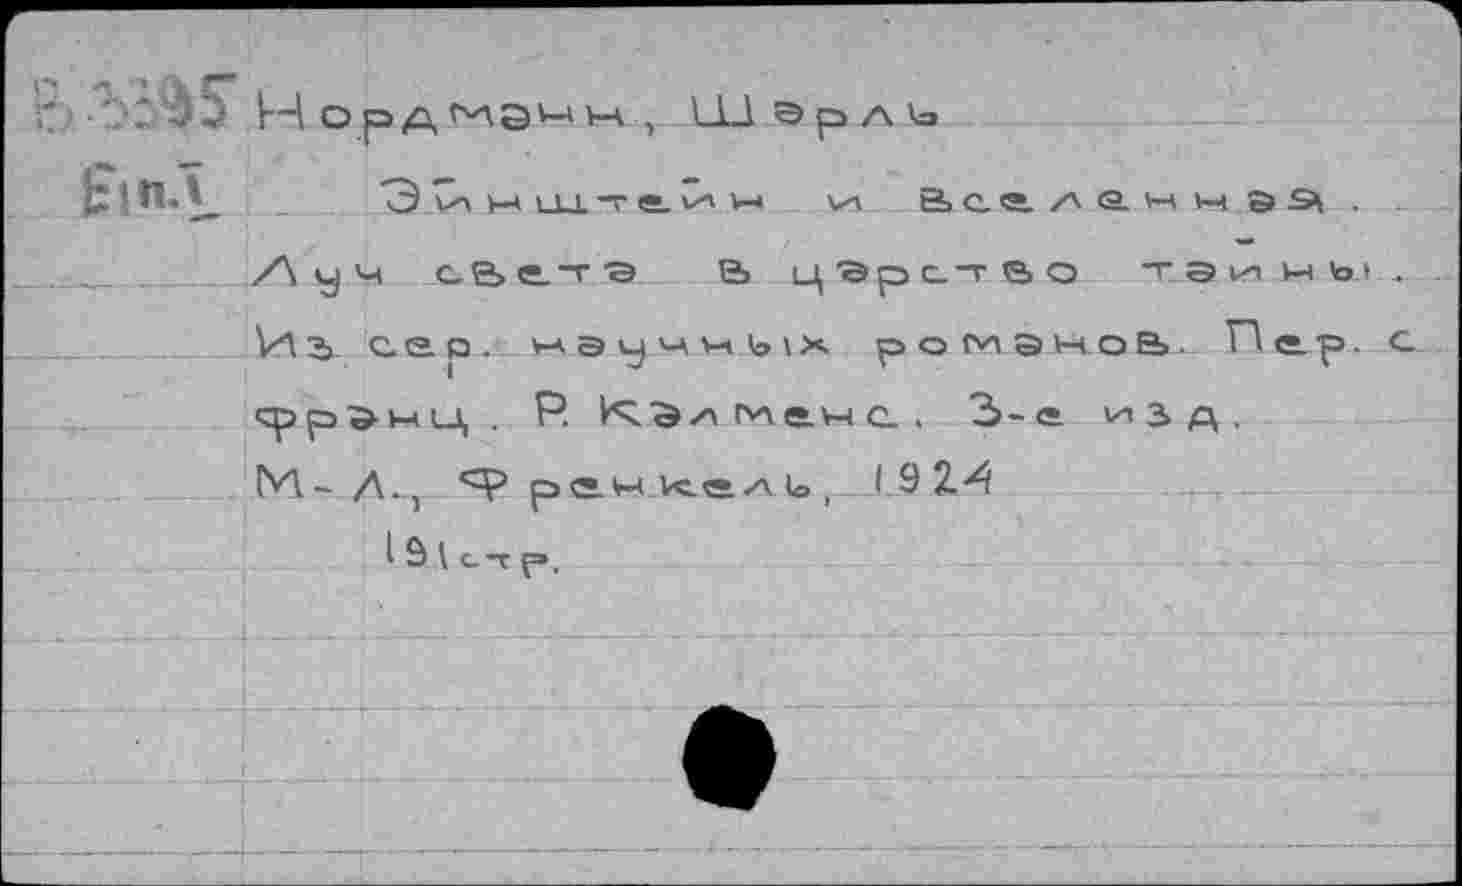 Нордманн, Шарль
Ein.1 Эйнштейн и Вселенная.
Луч света в царство тайны.
Из сер. научных романов. Пер. с
франц. Р. Калменс. 3-е изд.
М-Л., Френкель, 1924
191стр.